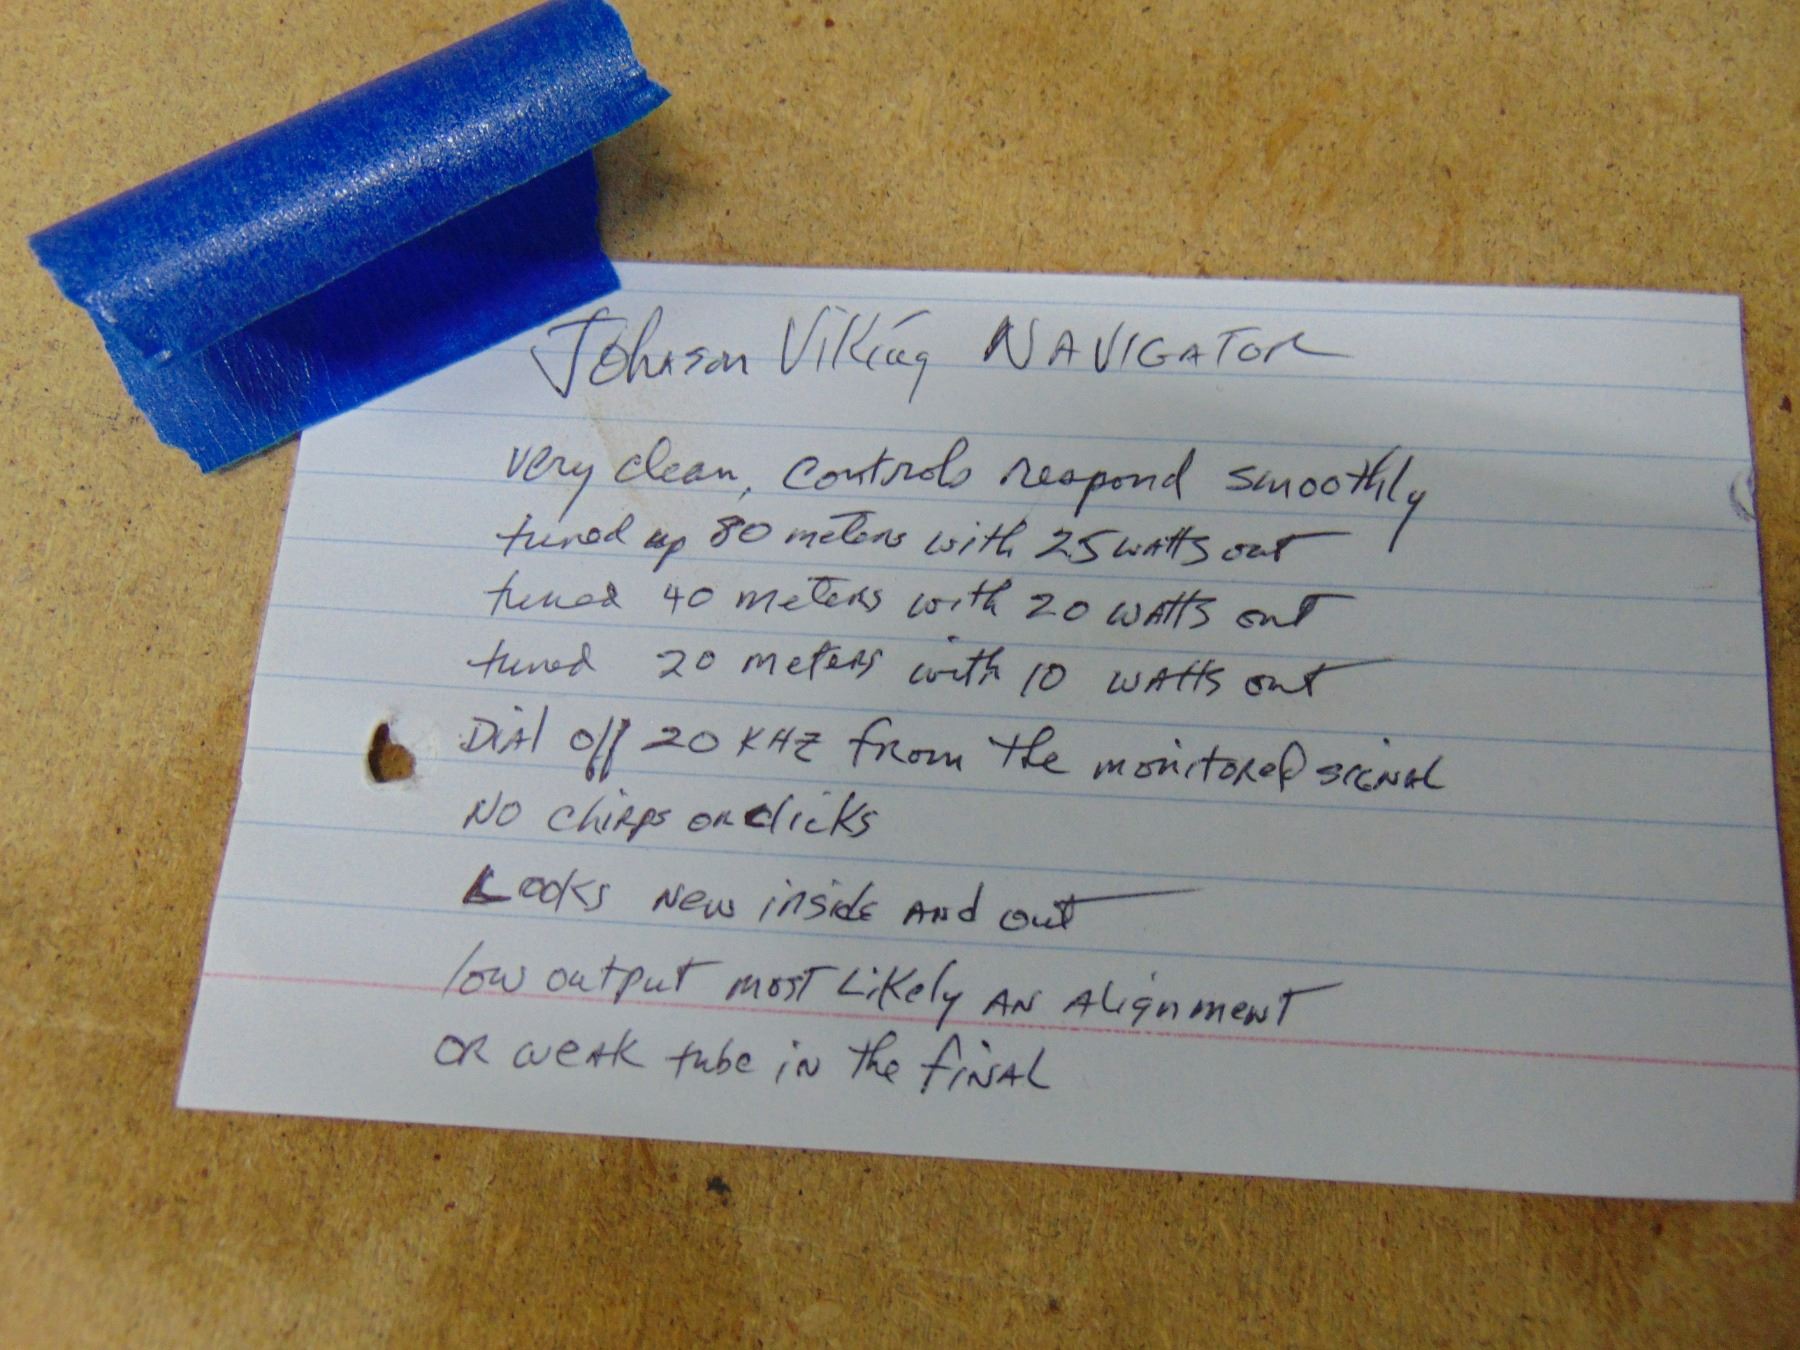 Johnson Viking NAVIGATOR
very clean, controls respond smoothly
tuned up 80 meters with 25 watts out
tuned 40 meters with 20 watts out
tuned 20 meters with 10 watts out
Dial off 20 KHZ from the monitored signal
No chirps or clicks
Looks new inside and out
low output most likely an alignment
or weak tube in the final